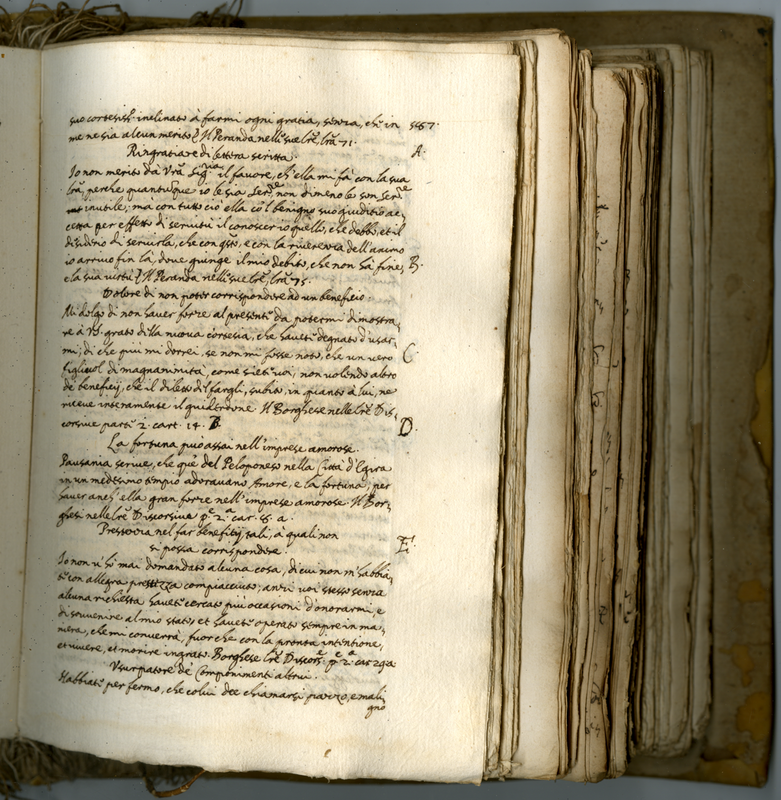 suo cortesiss.^te inclinato à farmi ogni gratia, senza, che in 567.
me ne sia alcun merito Il Peranda nelle sue lre, lra 71.
A.
Ringratiare di lettera scritta.
Io non merito da Vrã Sig.^ria il favore, ch'ella mi fà con la sua
lrã, perche quantũque io le sia Ser.^re non dimeno le son Ser.^re
inutile; mà con tutto ciò ella co'l benigno suo giuditio ac=
cetta per effetto di servitù il conoscer io quello, che debbo, et il
disiderio di servirla, che con q̃sto, e con la riverenza dell'animo
io arrivo fin là, dove giunge il mio debito, che non hà fine, B.
e la sua virtù Il Peranda nelle sue lre, lra 75.
Dolore di non poter corrispondere ad un beneficio.
Mi dolgo di non haver forze al presente da potermi dimostra,
re à VS. grato della nuova cortesia, che havete degnato d'usar,
mi; di che più mi dorrei, se non mi fosse noto, che un vero C
figliuol di magnanimità, come siete voi, non volendo altro
de' beneficij, che il diletto del fargli, subito, in quanto à lui, ne
riceve interamente il guiderdone Il Borghese nelle lre Dis,
corsive parte 2. cart. 14. D.
La fortuna può assai nell'imprese amorose.
Pausania scrive, che que' del Peloponeso nella Città d'Egira
in un medesimo tempio adoravano Amore, e la fortuna; per
haver anch'ella gran forze nell'imprese amorose. Il Bor,
ghesi nelle lre Discorsive p.^e 2.^a car. 55. a.
Prestezza nel far benefitij tali, à quali non E.
si possa corrispondere.
Io non v'hò mai domandato alcuna cosa, di cui non m'habbia,
te con allegra prestezza compiacciuto; anzi voi stesso senza
alcuna richiesta havete cercato più occasioni d'onorarmi, e
di sovvenire al mio stato, et havete operato sempre in ma,
niera, che mi converrà, fuor che con la pronta intentione,
et vivere, et morire ingrato. Borghese lre Discors.^e p.^e 2.^a car 29a
Usurpatore de' Componimenti altrui.
Habbiate per fermo, che colui dee chiamarsi pazzo, e mali,
gno